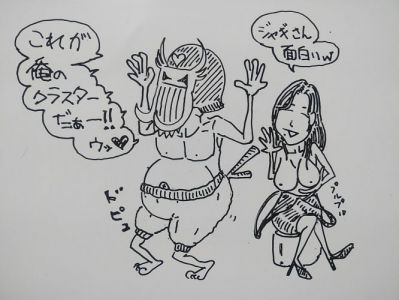 これが
俺の
クラスター
だぁー!!
ウッ♥
ジャギさん
面白いw
ピピッ
プルプル